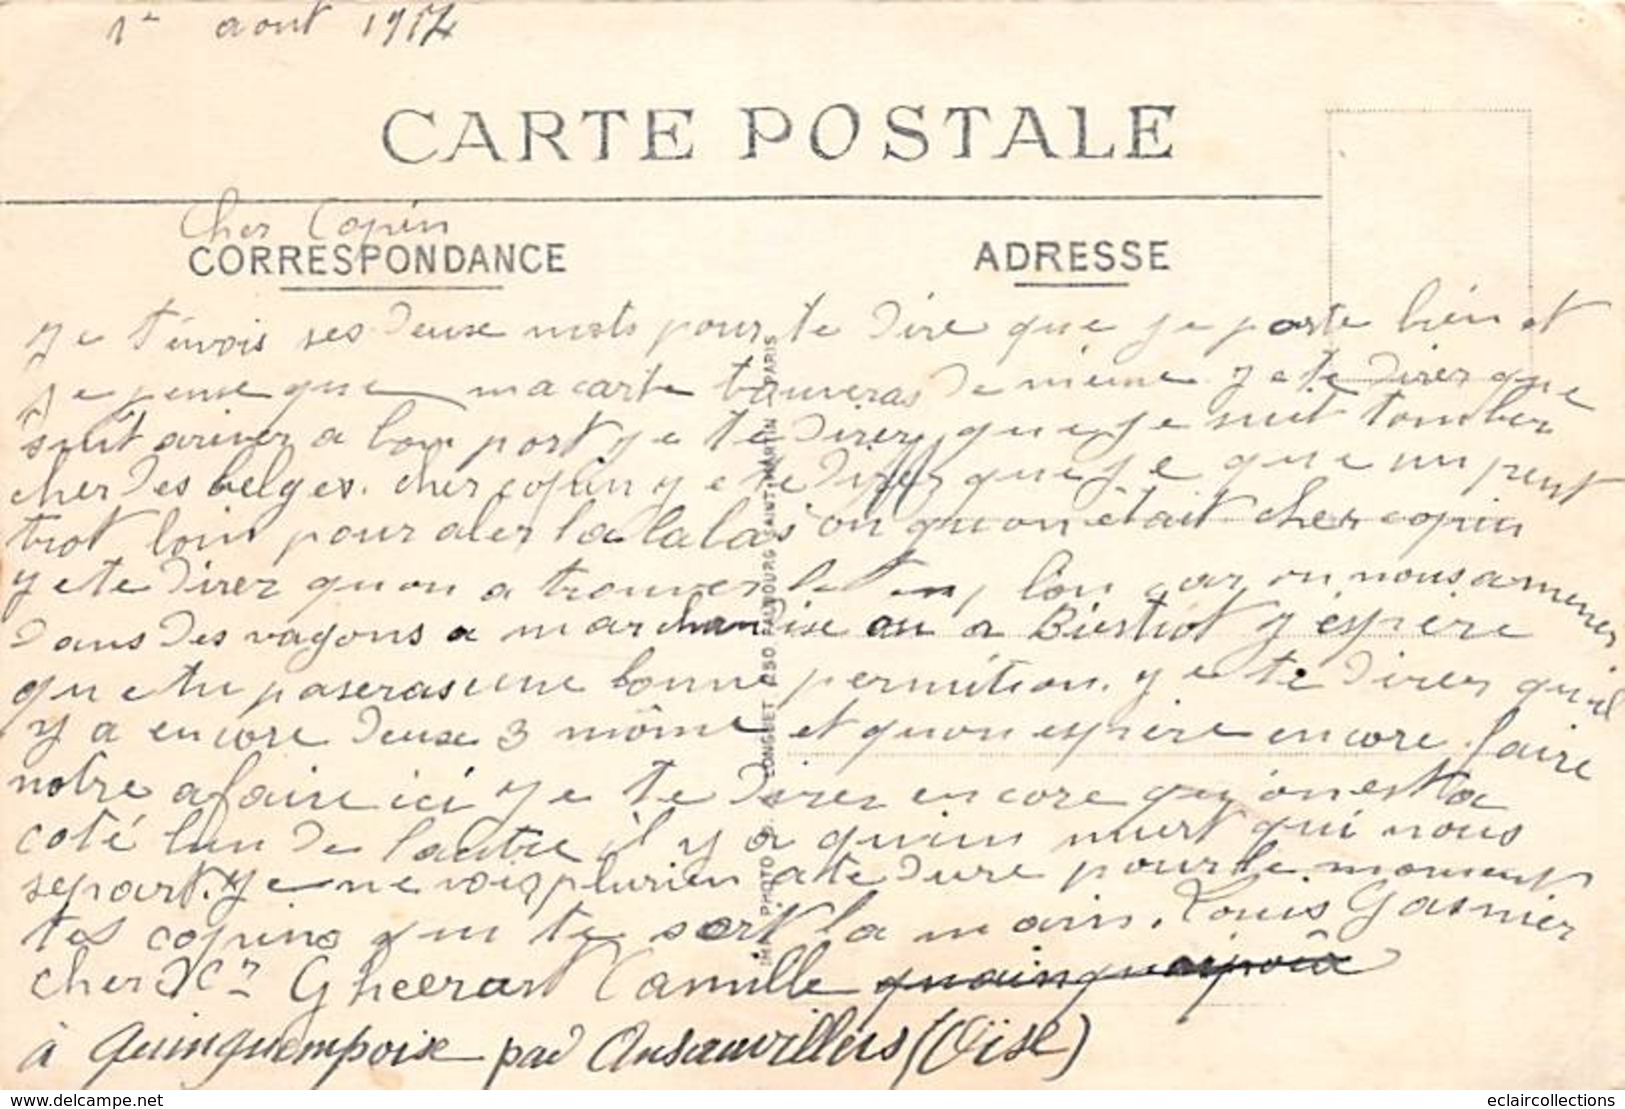 1er aout 1917
CARTE POSTALE
Cher Copin
CORRESPONDANCE
ADRESSE
Je t'envois ses deux mots pour te dire que je porte bien et
je pense que ma carte trouveras de meme Je te direz que
suit ariver a bon port Je te direz que je suit tomber
cher des belges. cher copin y e te direz que je que un peut
trot loin pour aler la la la s on qu on était cher copin
y e te direz qu on a trouver le bon car on nous a mener
dans des vagons a marchandise au a Bestiot J espere
que tu paseras une bonne permition. y e te direz qu il
y a encore deux 3 môme et qu on espere encore faire
notre afaire ici Je te direz encore qu on est a
coté l un de l autre il y a qu un murt qui nous
separt. Je ne vois plu rien a te dire pour le moment
tes copins qui te sert la main. Louis Gasnier
cher Mr Gheerart Camille
à Quinquempoix par Ansauvillers (Oise)
IMP. PHOTO D. LONGUET 250 FAUBOURG SAINT-MARTIN PARIS
Not for use without permission
eclaircollections